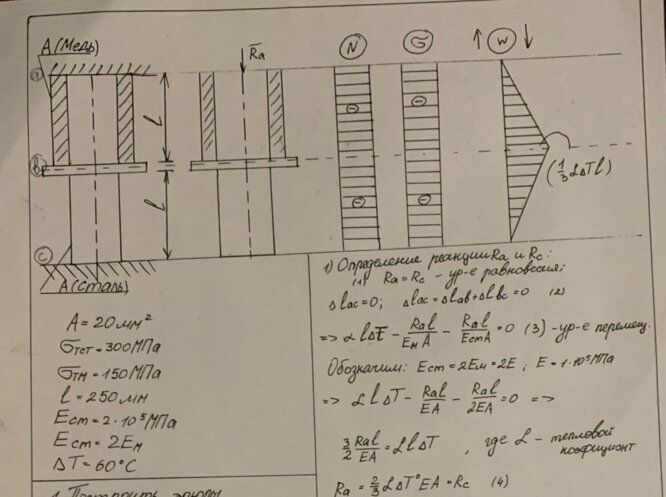 A (Медь)
R̄a
N
G
↑ W ↓
a
l
b
l
c
(1/3 αΔTl)
A (Сталь)
A = 20 мм²
σтст = 300 МПа
σтм = 150 МПа
l = 250 мм
Eст = 2·10⁵ МПа
Eст = 2Eм
ΔT = 60°C
1. Построить эпюры
1) Определение реакции Ra и Rc:
(1) Ra = Rc - ур-е равновесия;
Δlac = 0; Δlac = Δlab + Δlbc = 0 (2)
=> αlΔT - Ral/EмA - Ral/EстA = 0 (3) - ур-е перемещ.
Обозначим: Eст = 2Eм = 2E ; E = 1·10⁵ МПа
=> αlΔT - Ral/EA - Ral/2EA = 0 =>
3/2 Ral/EA = αlΔT , где α - тепловой
коефициант
Ra = 2/3 αΔT°EA = Rc (4)